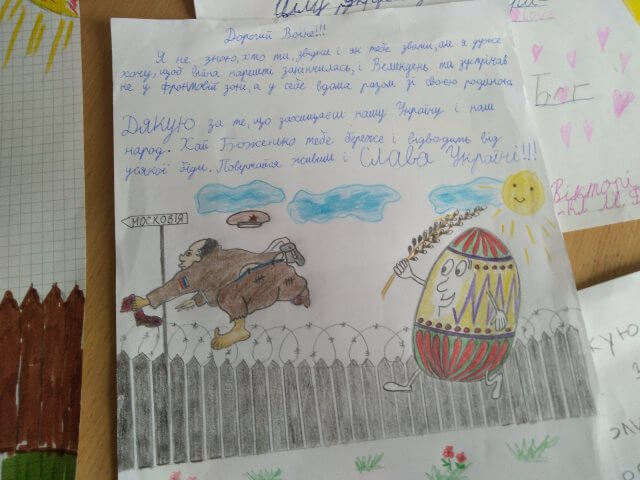 Дорогий Воїне!!!
Я не знаю, хто ти, звідки і як тебе звати, але я дуже
хочу, щоб війна нарешті закінчилась, і Великдень ти зустрічав
не у фронтовій зоні, а у себе вдома разом зі своєю родиною
ДЯКУЮ за те, що захищаєш нашу Україну і наш
народ. Хай Боженько тебе береже і відводить від
усякої біди. Повертайся живим і Слава Україні!!!
МОСКОВІЯ
Love
Бог
Вікторі